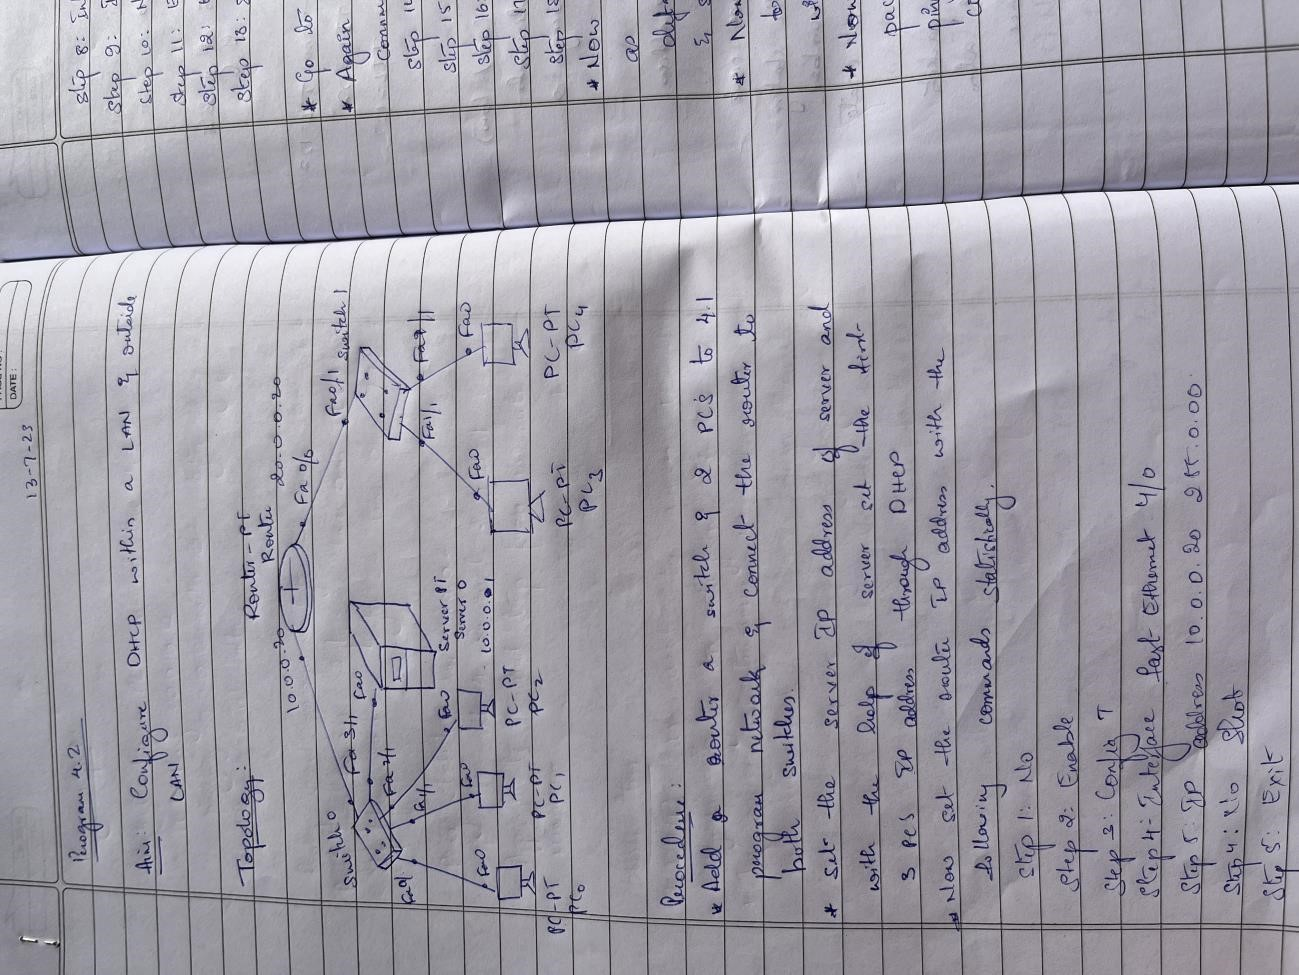 DATE:
13-7-23
Program 4.2
Aim: Configure DHCP within a LAN & outside
LAN
Topology:
Router-PT
Router
10.0.0.20
20.0.0.20
Fa 0/0
Fa0/1 switch 1
Switch 0
Fa 3/1
Fa0
Fa0/1
Fa1/1
Fa 2/1
Fa1/1
Fa0
Fa0
Fa0
Fa0
Fa0
Server PT
Server 0
10.0.0.01
PC-PT
PC0
PC-PT
PC1
PC-PT
PC2
PC-PT
PC3
PC-PT
PC4
Procedure:
* Add a router a switch & 2 PC's to 4.1
program network & connect the router to
both switches.
* Set the server IP address of server and
with the help of server set the first
3 PCS IP address through DHCP
* Now set the router IP address with the
following commands statistically.
Step 1: No
Step 2: Enable
Step 3: Config T
Step 4: Interface fast Ethernet 4/0
Step 5: IP address 10.0.0.20 255.0.0.0
Step 4: No Shut
Step 5: Exit
Step 8:
Step 9:
Step 10:
Step 11:
Step 12:
Step 13:
* Go to
* Again
Step 15
Step 16
* Now
* Now
to
* Now